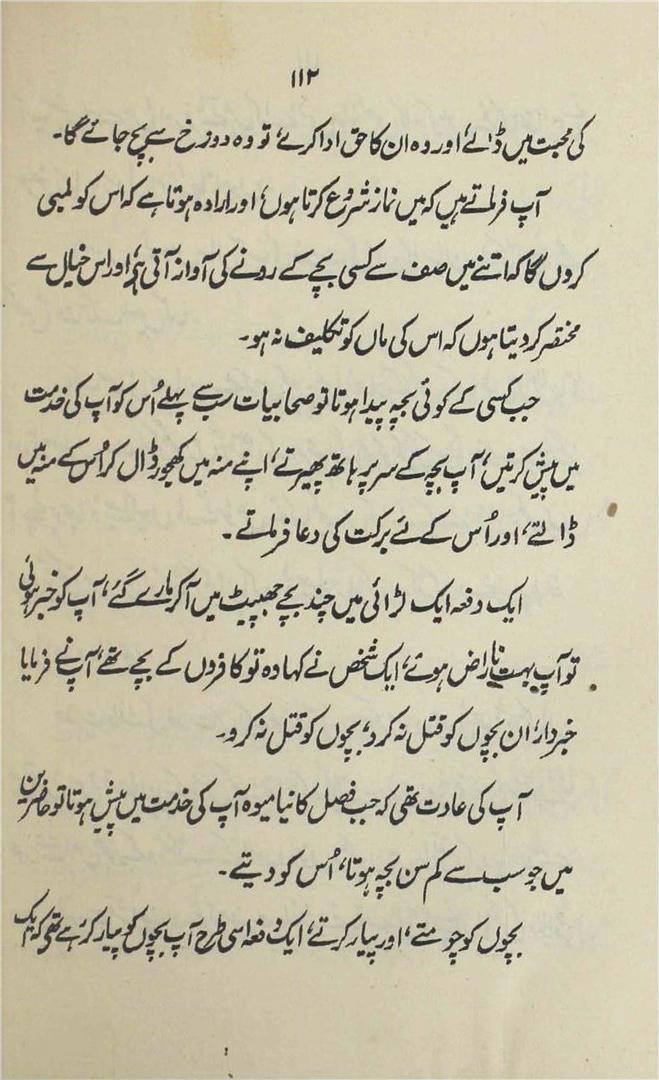 ۱۱۲
کی محبت میں ڈالے، اور وہ ان کا حق ادا کرے، تو وہ دوزخ سے بچ جائے گا۔
آپ فرماتے ہیں کہ میں نماز شروع کرتا ہوں، اور ارادہ ہوتا ہے کہ اس کو لمبی
کروں گا کہ اتنے میں صف سے کسی بچے کے رونے کی آواز آتی ہے، اور اس خیال سے
مختصر کر دیتا ہوں کہ اس کی ماں کو تکلیف نہ ہو۔
جب کسی کے کوئی بچہ پیدا ہوتا تو صحابیات سب سے پہلے اُس کو آپ کی خدمت
میں پیش کرتیں، آپ بچہ کے سر پر ہاتھ پھیرتے، اپنے منہ میں کھجور ڈال کر اُس کے منہ میں
ڈالتے، اور اُس کے لئے برکت کی دعا فرماتے۔
ایک دفعہ ایک لڑائی میں چند بچے جھپیٹ میں آ کر مارے گئے، آپ کو خبر ہوئی
تو آپ بہت ناراض ہوئے، ایک شخص نے کہا وہ تو کافروں کے بچے تھے، آپ نے فرمایا
خبردار، ان بچوں کو قتل نہ کرو، بچوں کو قتل نہ کرو۔
آپ کی عادت تھی کہ جب فصل کا نیا میوہ آپ کی خدمت میں پیش ہوتا تو حاضرین
میں جو سب سے کم سن بچہ ہوتا، اُس کو دیتے۔
بچوں کو چومتے، اور پیار کرتے، ایک دفعہ اسی طرح آپ بچوں کو پیار کر رہے تھے کہ ایک